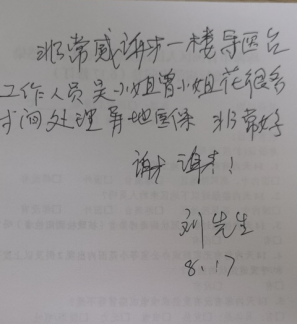 非常感谢一楼导医台
工作人员吴小姐曾小姐花很多
时间处理异地医保 非常好
谢谢！
刘先生
8.17